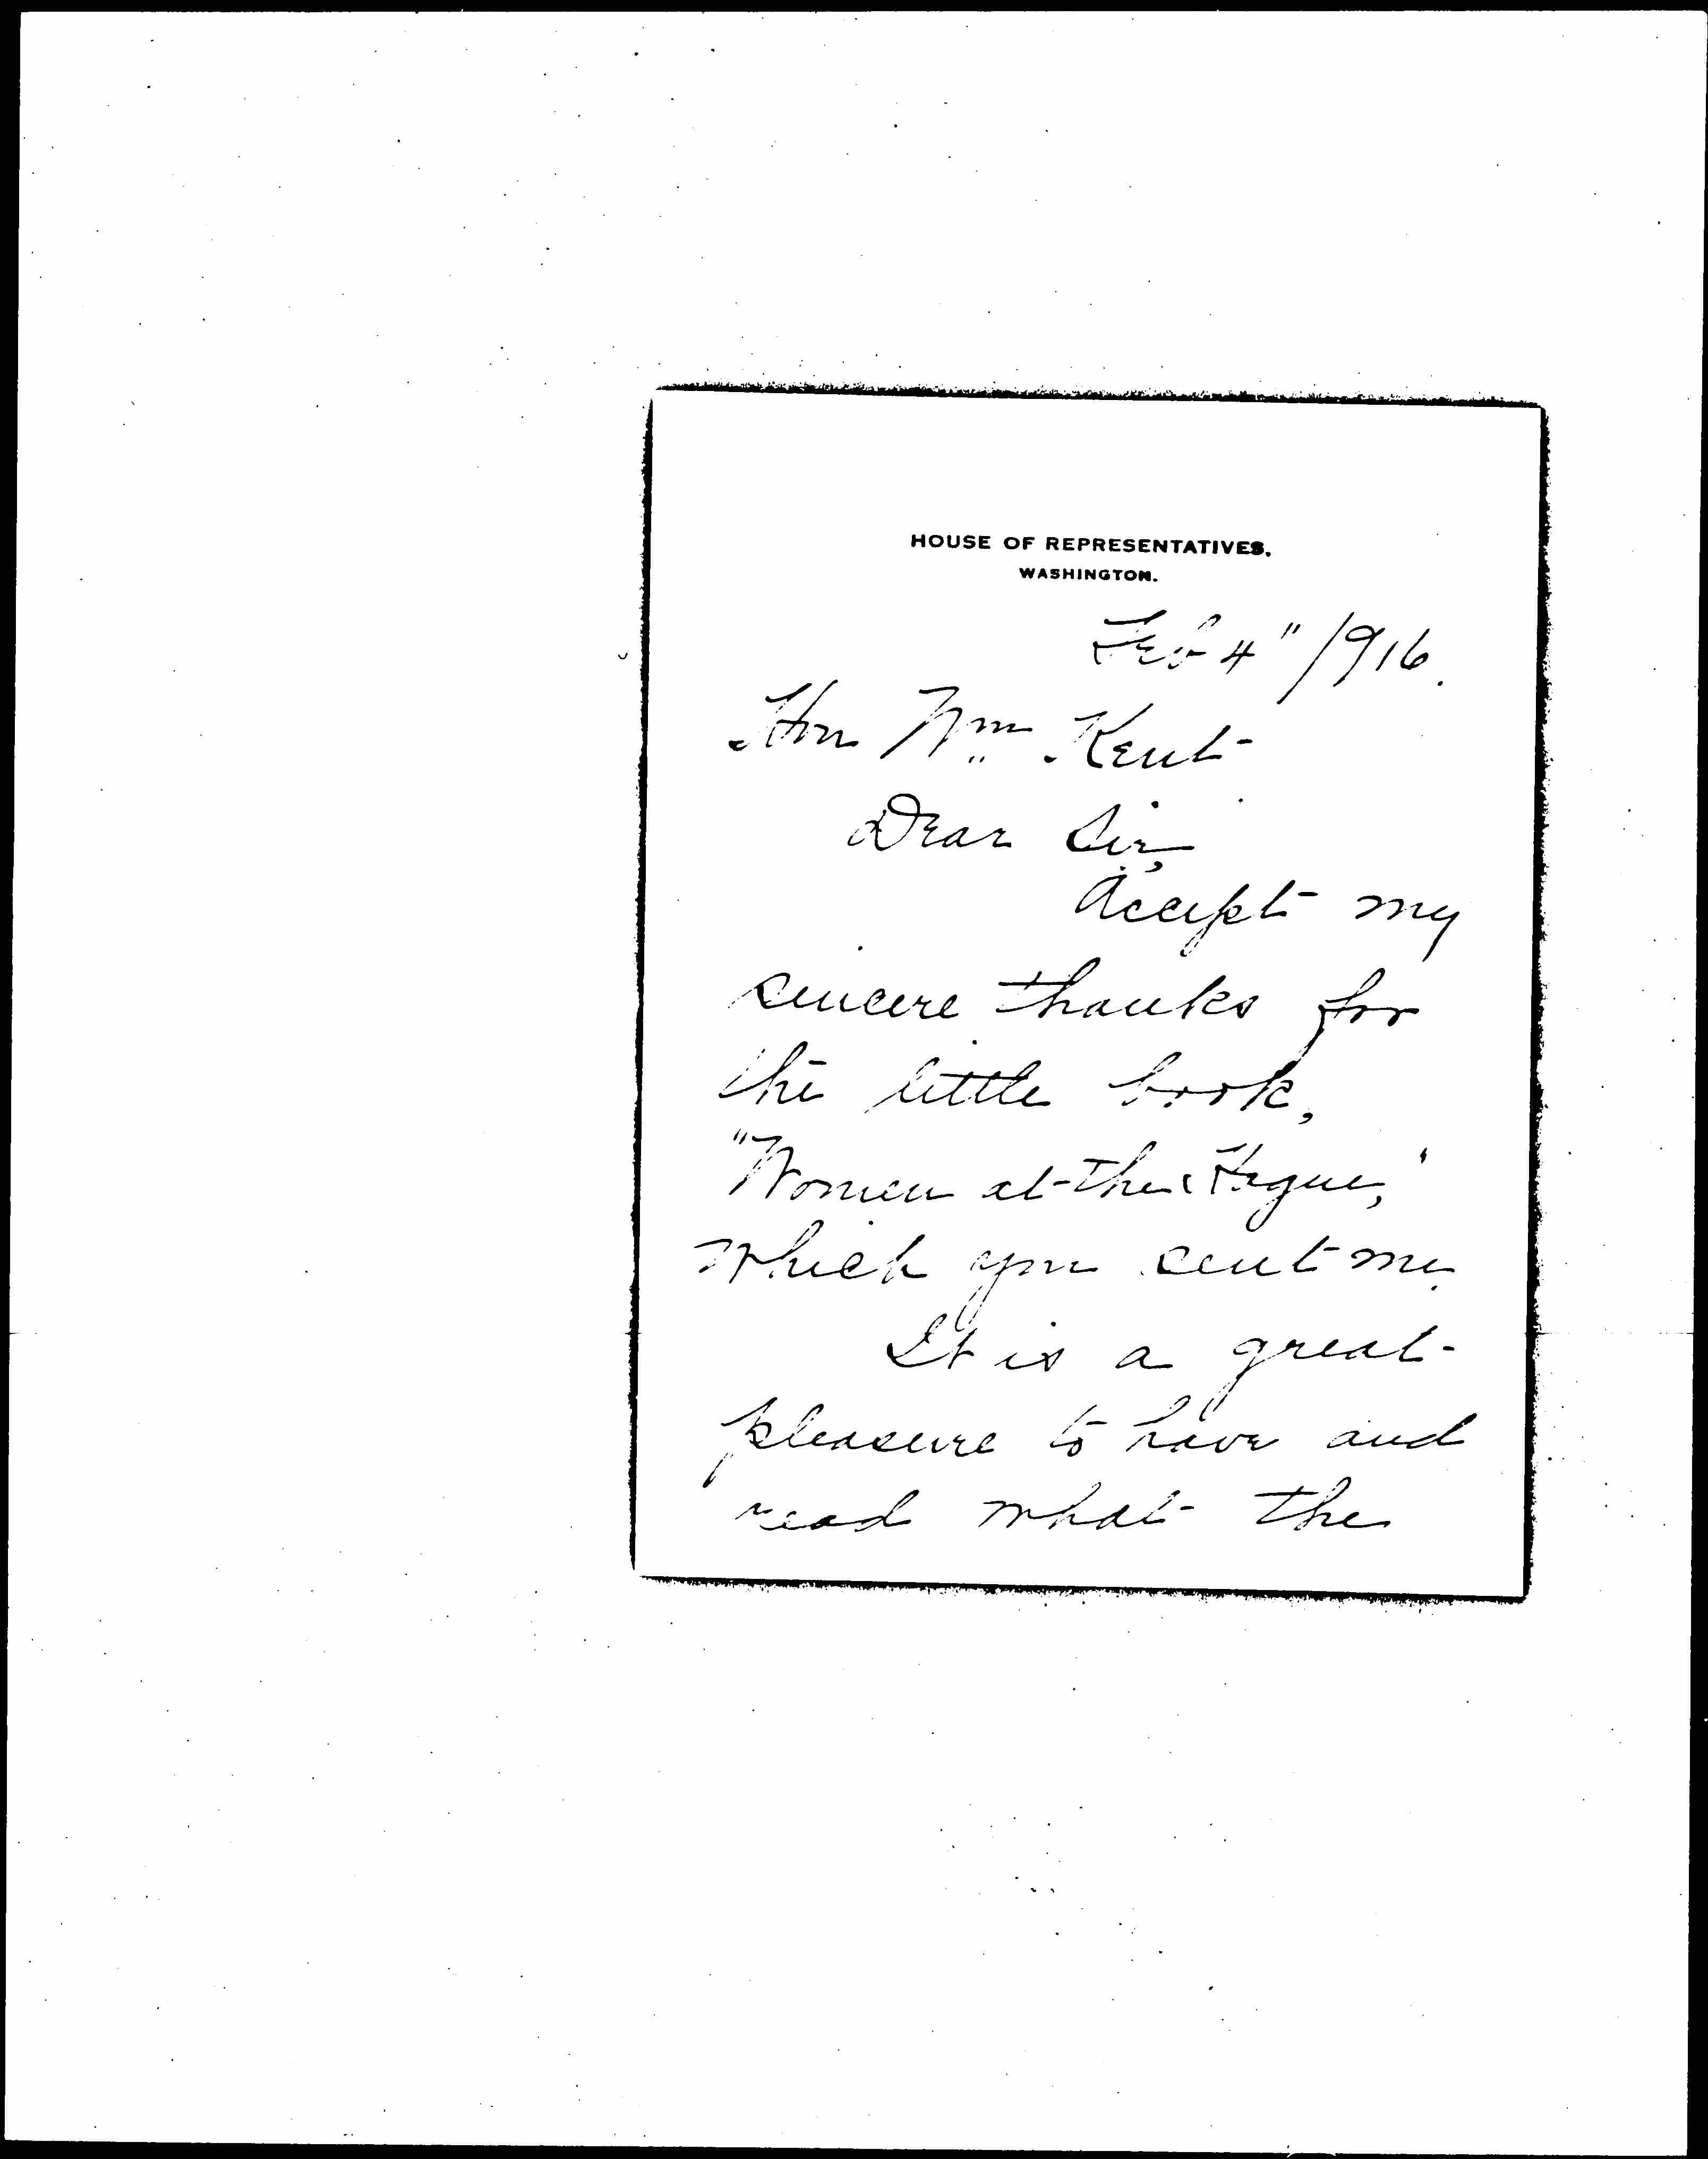 HOUSE OF REPRESENTATIVES.
WASHINGTON.
Feb 4" / 1916.
Hon Wm Kent
Dear Sir,
Accept my
sincere thanks for
the little book,
"Women at the Hague,"
which you sent me.
It is a great
pleasure to have and
read what the